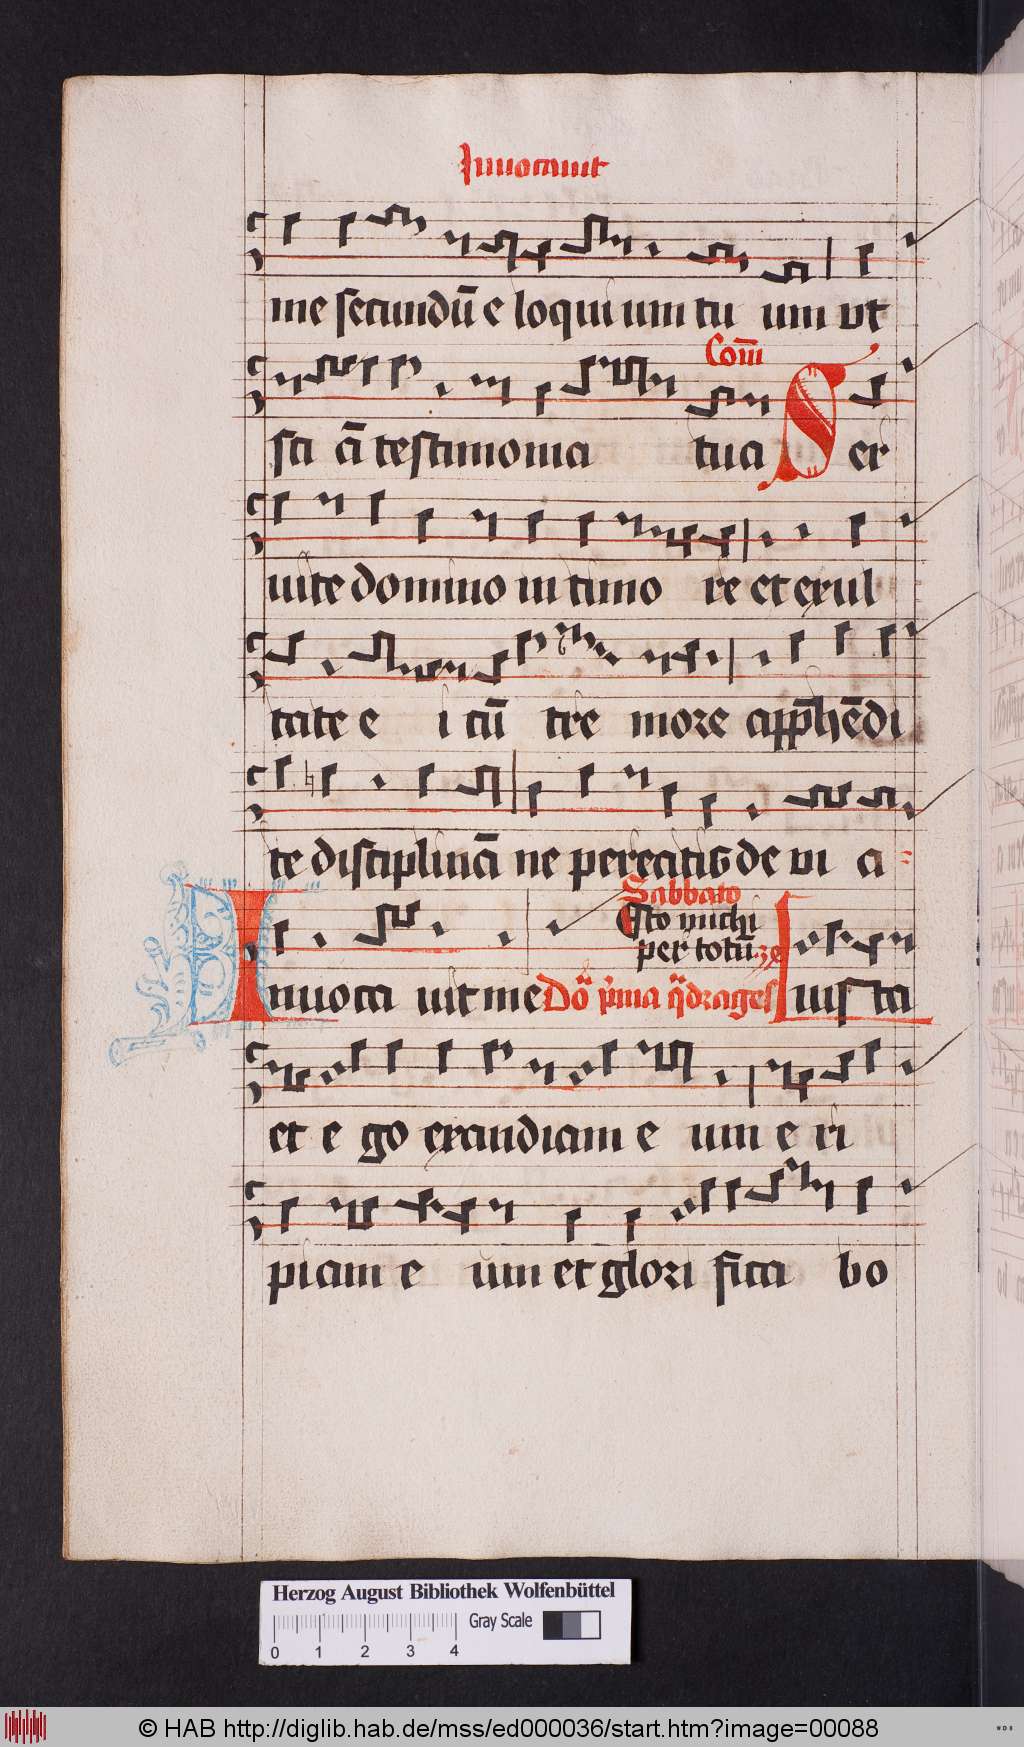 Inuocauit
me secundū e loqui um tu um vt
Com̄
sci ā testimonia tua Ser
uite domino in timo re et exul
tate e i cū tre more app̄hēdi
te disciplinā ne pereatis de vi a
Sabbato
Esto michi
per totū
Inuoca uit me Dō p̄ma q̄drages uis ta
et e go exaudiam e um e ri
piam e um et glori fica bo
Herzog August Bibliothek Wolfenbüttel
Gray Scale
0 1 2 3 4
© HAB http://diglib.hab.de/mss/ed000036/start.htm?image=00088